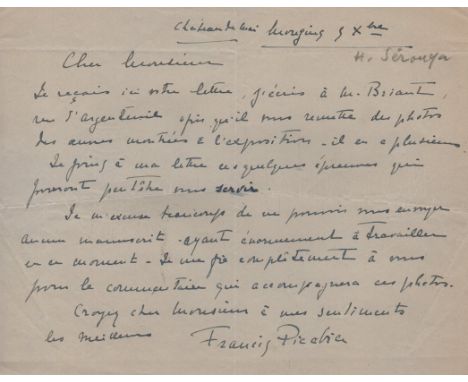 Château de Mai Mougins 9 Xbre
H. Sérouya
Cher Monsieur
Je reçois ici votre lettre, j'écris à M. Briant,
rue d'argenteuil afin qu'il vous remette des photos
des œuvres montrées à l'exposition - il en a plusieurs.
Je joins à ma lettre ces quelques épreuves qui
pourront peut être vous servir.
Je m'excuse beaucoup de ne pouvoir vous envoyer
aucun manuscrit - ayant énormément à travailler
en ce moment - Je me fie complètement à vous
pour le commentaire qui accompagnera ces photos.
Croyez cher Monsieur à mes sentiments
les meilleurs
Francis Picabia